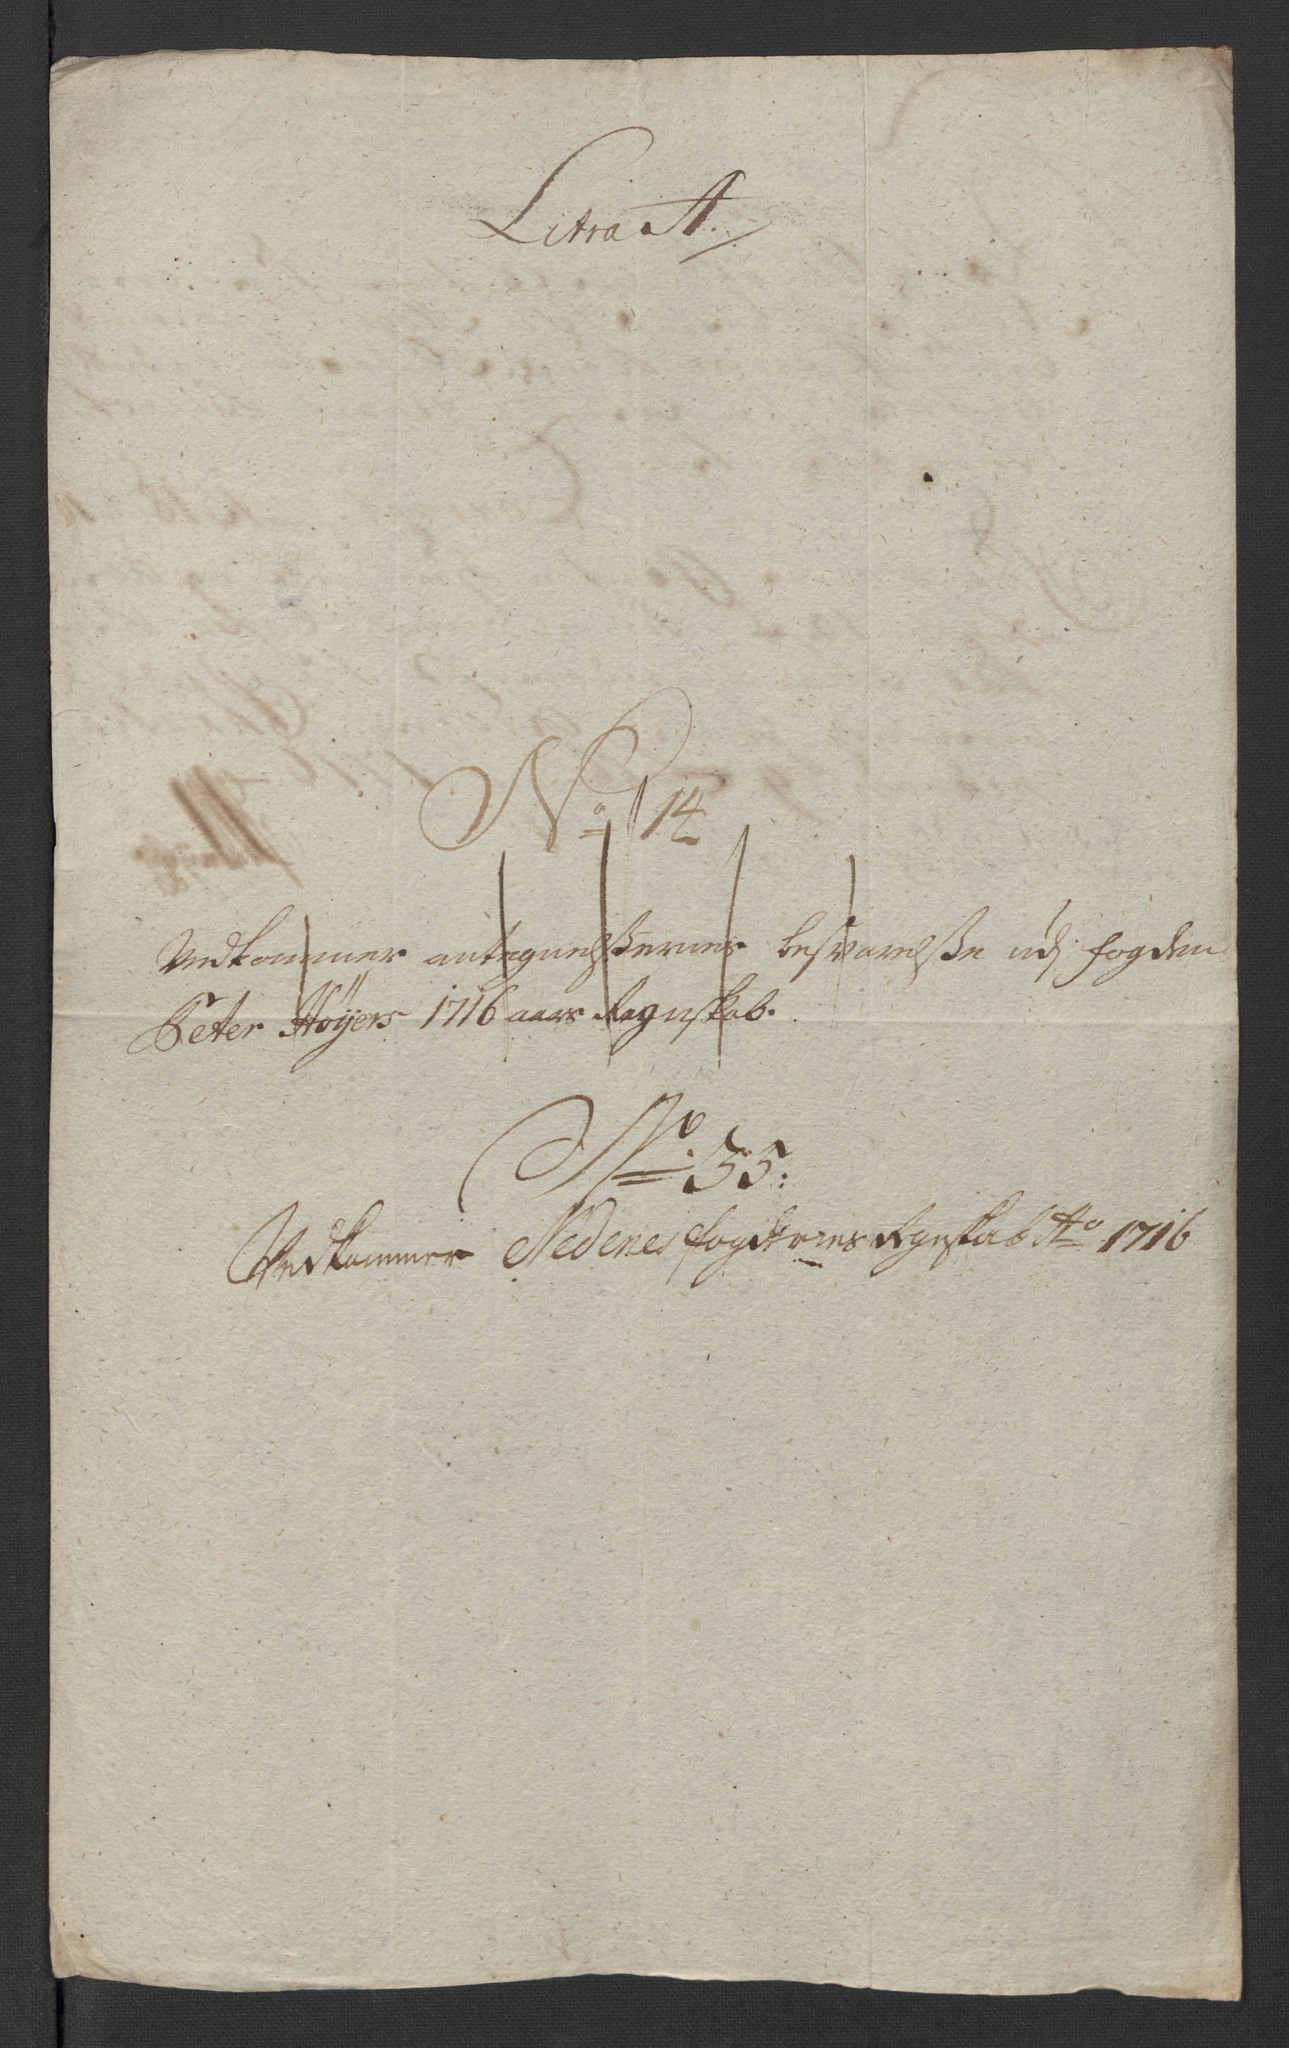 Litra A.
No 14
Vedkommer antegnelßernes besvarelße udj fogden
Peter Höÿers 1716 aars Regnskab.
No: 55:
Vedkommer Nedenes fogderies Rgnskab Ao 1716